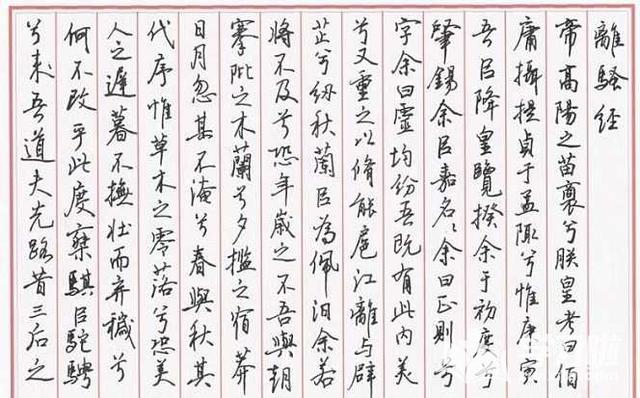 離騷经
帝高陽之苗裔兮朕皇考曰伯
庸攝提貞于孟陬兮惟庚寅
吾㠯降皇覽揆余于初度兮
肇錫余㠯嘉名、余曰正則兮
字余曰靈均纷吾既有此内美
兮又重之以脩能扈江離与辟
芷兮纫秋蘭㠯為佩汩余若
將不及兮恐年歲之不吾與朝
搴阰之木蘭兮夕攬之宿莽
日月忽其不淹兮春與秋其
代序惟草木之零落兮恐美
人之遲暮不撫壮而弃穢兮
何不改乎此度乘騏㠯駝騁
兮来吾道夫先路昔三后之